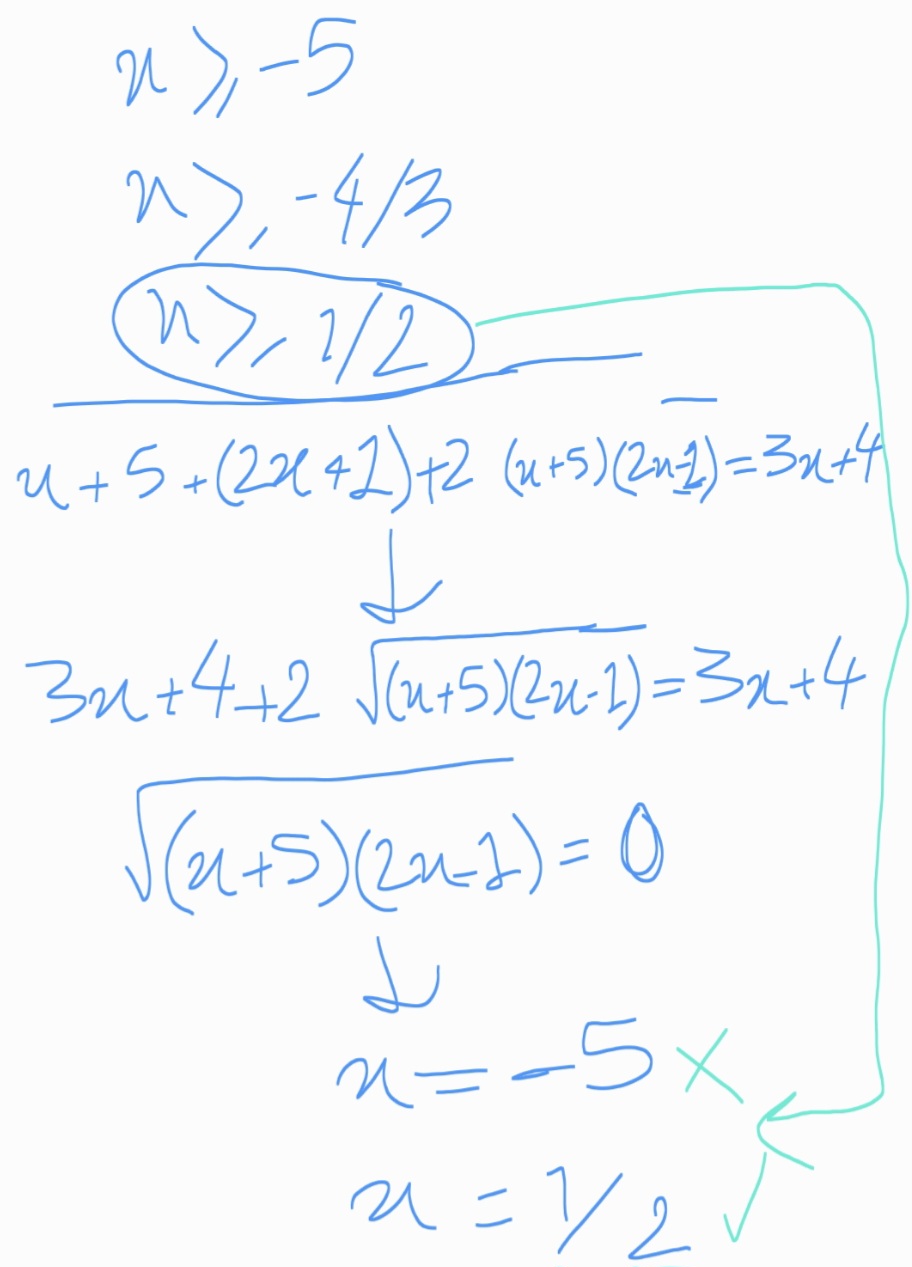 x ⩾ -5
x ⩾ -4/3
x ⩾ 1/2
x + 5 + (2x + 1) + 2 (x+5)(2x-1) = 3x+4
↓
3x + 4 + 2 √(x+5)(2x-1) = 3x+4
√(x+5)(2x-1) = 0
↓
x = -5 ×
x = 1/2 ✓